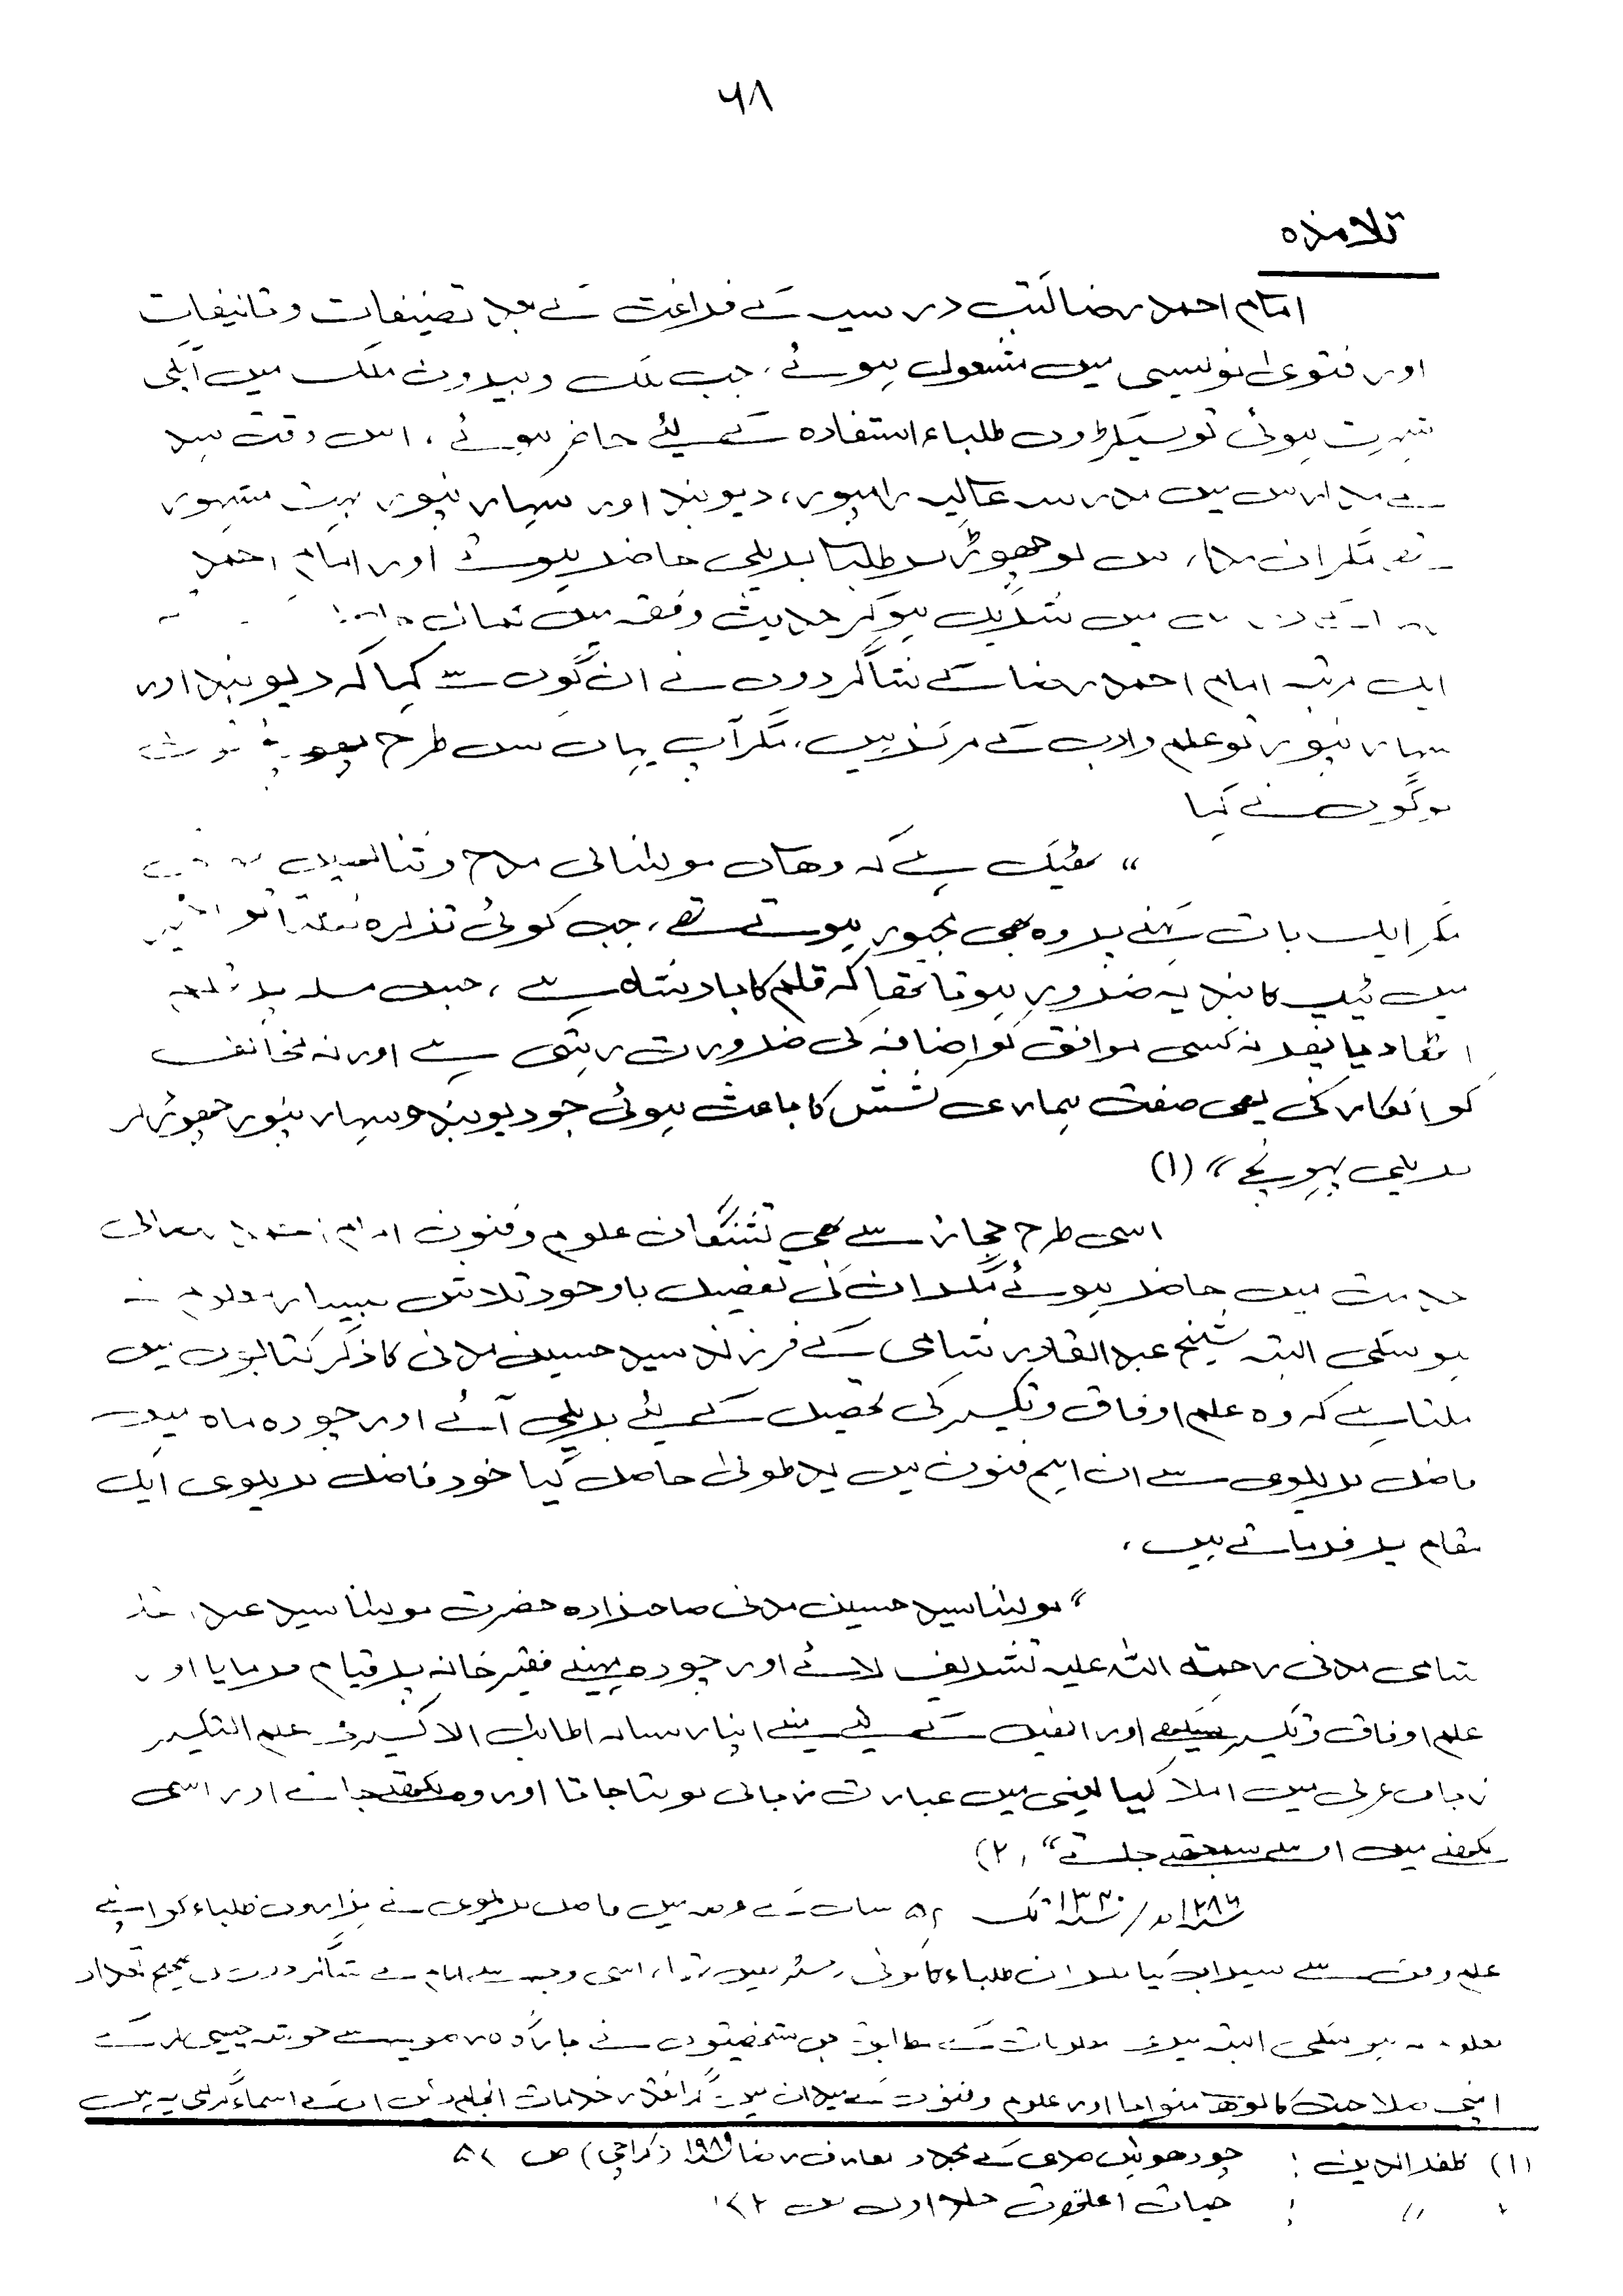 ۶۸
تلامذہ
امام احمد رضا کتب درسیہ سے فراغت کے بعد تصنیفات و تالیفات
اور فتویٰ نویسی میں مشغول ہوئے، جب ملک و بیرون ملک میں آپکی
شہرت ہوئی تو سیکڑوں طلباء استفادہ کے لیے حاضر ہوئے، اس وقت ہند
کے مدارس میں مدرسہ عالیہ رامپور، دیوبند اور سہارنپور بہت مشہور
تھے مگر ان مدارس کو چھوڑ کر طلبا بریلی حاضر ہوئے اور امام احمد
میں شریک ہوکر حدیث و فقہ میں
ایک مرتبہ امام احمد رضا کے شاگردوں نے ان لوگوں سے کہا کہ دیوبند اور
سہارنپور تو علم و ادب کے مرکز ہیں، مگر آپ یہاں کس طرح
لوگوں نے کہا
" ٹھیک ہے کہ وہاں مولانا کی مدح و ثنا
مگر ایک بات کہنے پر وہ بھی مجبور ہوتے تھے، جب کوئی تذکرہ
میں ٹیپ کا بند یہ ضرور ہوتا تھا کہ قلم کا بادشاہ ہے، جس مسئلہ پر قلم
اٹھا دیا پھر نہ کسی موافق کو اضافہ کی ضرورت رہتی ہے اور نہ مخالف
کو انکار کی یہی صفت ہماری کشش کا باعث ہوئی جو دیوبند و سہارنپور چھوڑ کر
بریلی پہونچے" (۱)
اسی طرح حجاز سے بھی تشنگان علوم و فنون امام احمد رضا کی
خدمت میں حاضر ہوئے مگر ان کی تفصیل باوجود تلاش بسیار معلوم نہ
ہو سکی البتہ شیخ عبدالقادر شامی کے فرزند سید حسین مدنی کا ذکر کتابوں میں
ملتا ہے کہ وہ علم اوفاق و تکسیر کی تحصیل کے لیے بریلی آئے اور چودہ ماہ میں
فاضل بریلوی سے ان اہم فنون میں ید طولیٰ حاصل کیا خود فاضل بریلوی ایک
مقام پر فرماتے ہیں،
" مولانا سید حسین مدنی صاحبزادہ حضرت مولانا سید عبد القادر
شامی مدنی رحمتہ اللہ علیہ تشریف لائے اور چودہ مہینے فقیر خانہ پر قیام فرمایا اور
علم اوفاق و تکسیر سیکھے اور انھیں کے لیے میں نے اپنا رسالہ اطائب الاکسیر فی علم التکسیر
زبان عربی میں املا کیا یعنی میں عبارت زبانی بولتا جاتا اور وہ لکھتے جاتے اور اسی
لکھنے میں اسے سمجھتے جاتے" (۲)
۱۲۸۶ھ / ۱۳۴۰ھ تک ۵۴ سال کے عرصہ میں فاضل بریلوی نے ہزاروں طلباء کو اپنے
علم و فن سے سیراب کیا مگر ان طلباء کا کوئی رجسٹر نہیں تھا، اسی وجہ سے امام کے شاگردوں کی صحیح تعداد
معلوم نہ ہو سکی البتہ میری معلومات کے مطابق جن شخصیتوں نے بارگاہ رضویہ سے خوشہ چینی کر کے
اپنی صلاحیت کا لوہا منوایا اور علوم و فنون کے میدان میں گرانقدر خدمات انجام دیں ان کے اسماء گرامی یہ ہیں
(۱) ظفر الدین : چودھویں صدی کے مجدد معارف رضا ۱۹۸۶ (کراچی) ص ۵۲
۲ // : حیات اعلیٰحضرت جلد اول ص